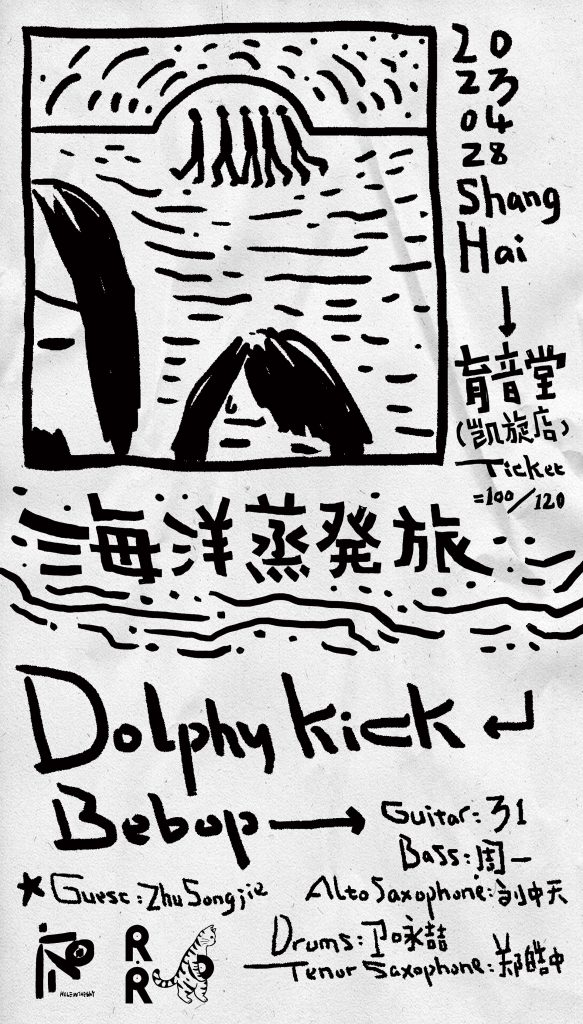 20
23
04
28
Shang
Hai
育音堂
(凯旋店)
Ticket
=100/120
海洋蒸発旅
Dolphy Kick
Bebop
Guitar: 31
Bass: 周一
Guest: Zhu Songjie
Alto Saxophone: 刘中天
Drums: 卫咏喆
Tenor Saxophone: 郑皓中
R
R
HOLEINTHESKY